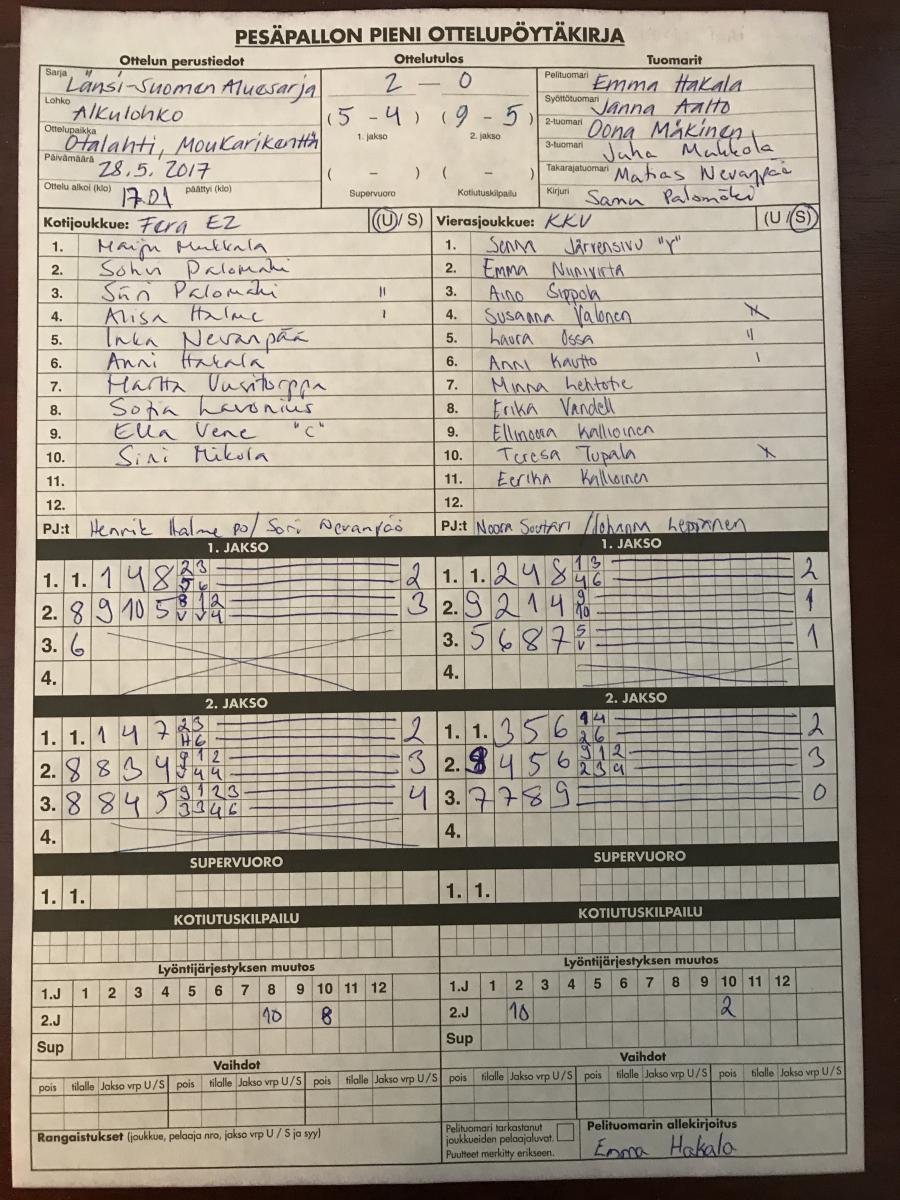 PESÄPALLON PIENI OTTELUPÖYTÄKIRJA
Ottelun perustiedot Ottelutulos Tuomarit
Sarja Länsi-Suomen Aluesarja
Lohko Alkulohko
Ottelupaikka Otalahti, Moukarikenttä
Päivämäärä 28.5. 2017
Ottelu alkoi (klo) 17.01 päättyi (klo)
2 – 0
(5 - 4) (9 - 5)
1. jakso 2. jakso
( - ) ( - )
Supervuoro Kotiutuskilpailu
Pelituomari Emma Hakala
Syöttötuomari Janna Aalto
2-tuomari Oona Mäkinen
3-tuomari Juha Mukkola
Takarajatuomari Matias Nevanpää
Kirjuri Samu Palomäki
Kotijoukkue: Fera E2 (U/S)
1. Maiju Mukkala
2. Palomäki
3. Siiri Palomäki "
4. Alisa Halme '
5. Inka Nevanpää
6. Anni Hakala
7. Martta Uusitorppa
8. Sofia Lavonius
9. Ella Vene "C"
10. Sini Mikola
11.
12.
PJ:t Henrik Halme PO/ Nevanpää
Vierasjoukkue: KKV (U/S)
1. Senna Järvensivu "Y"
2. Emma Niinivirta
3. Aino Sippola
4. Susanna Valonen X
5. Laura Ossa "
6. Anni Kautto '
7. Minna Lehtotie
8. Erika Vandell
9. Ellinoora Kallioinen
10. Teresa Tupala X
11. Eerika Kallioinen
12.
PJ:t Noora Soutari / Johanna Leppänen
1. JAKSO
1. 1. 1 4 8 2 3 5 6 2
2. 8 9 10 5 8 1 2 V V 4 3
3. 6
4.
1. JAKSO
1. 1. 2 4 8 1 3 4 6 2
2. 9 2 1 4 9 10 1
3. 5 6 8 7 5 V 1
4.
2. JAKSO
1. 1. 1 4 7 2 3 H 6 2
2. 8 8 3 4 9 1 2 V 4 4 3
3. 8 8 4 5 9 1 2 3 3 3 4 6 4
4.
2. JAKSO
1. 1. 3 5 6 1 4 2 6 2
2. 8 4 5 6 9 1 2 2 3 4 3
3. 7 7 8 9 0
4.
SUPERVUORO
1. 1.
SUPERVUORO
1. 1.
KOTIUTUSKILPAILU
KOTIUTUSKILPAILU
Lyöntijärjestyksen muutos
1.J 1 2 3 4 5 6 7 8 9 10 11 12
2.J 10 8
Sup
Lyöntijärjestyksen muutos
1.J 1 2 3 4 5 6 7 8 9 10 11 12
2.J 10 2
Sup
Vaihdot
pois tilalle Jakso vrp U/S pois tilalle Jakso vrp U/S pois tilalle Jakso vrp U/S
Vaihdot
pois tilalle Jakso vrp U/S pois tilalle Jakso vrp U/S pois tilalle Jakso vrp U/S
Rangaistukset (joukkue, pelaaja nro, jakso vrp U / S ja syy)
Pelituomari tarkastanut
joukkueiden pelaajaluvat.
Puutteet merkitty erikseen.
Pelituomarin allekirjoitus
Emma Hakala